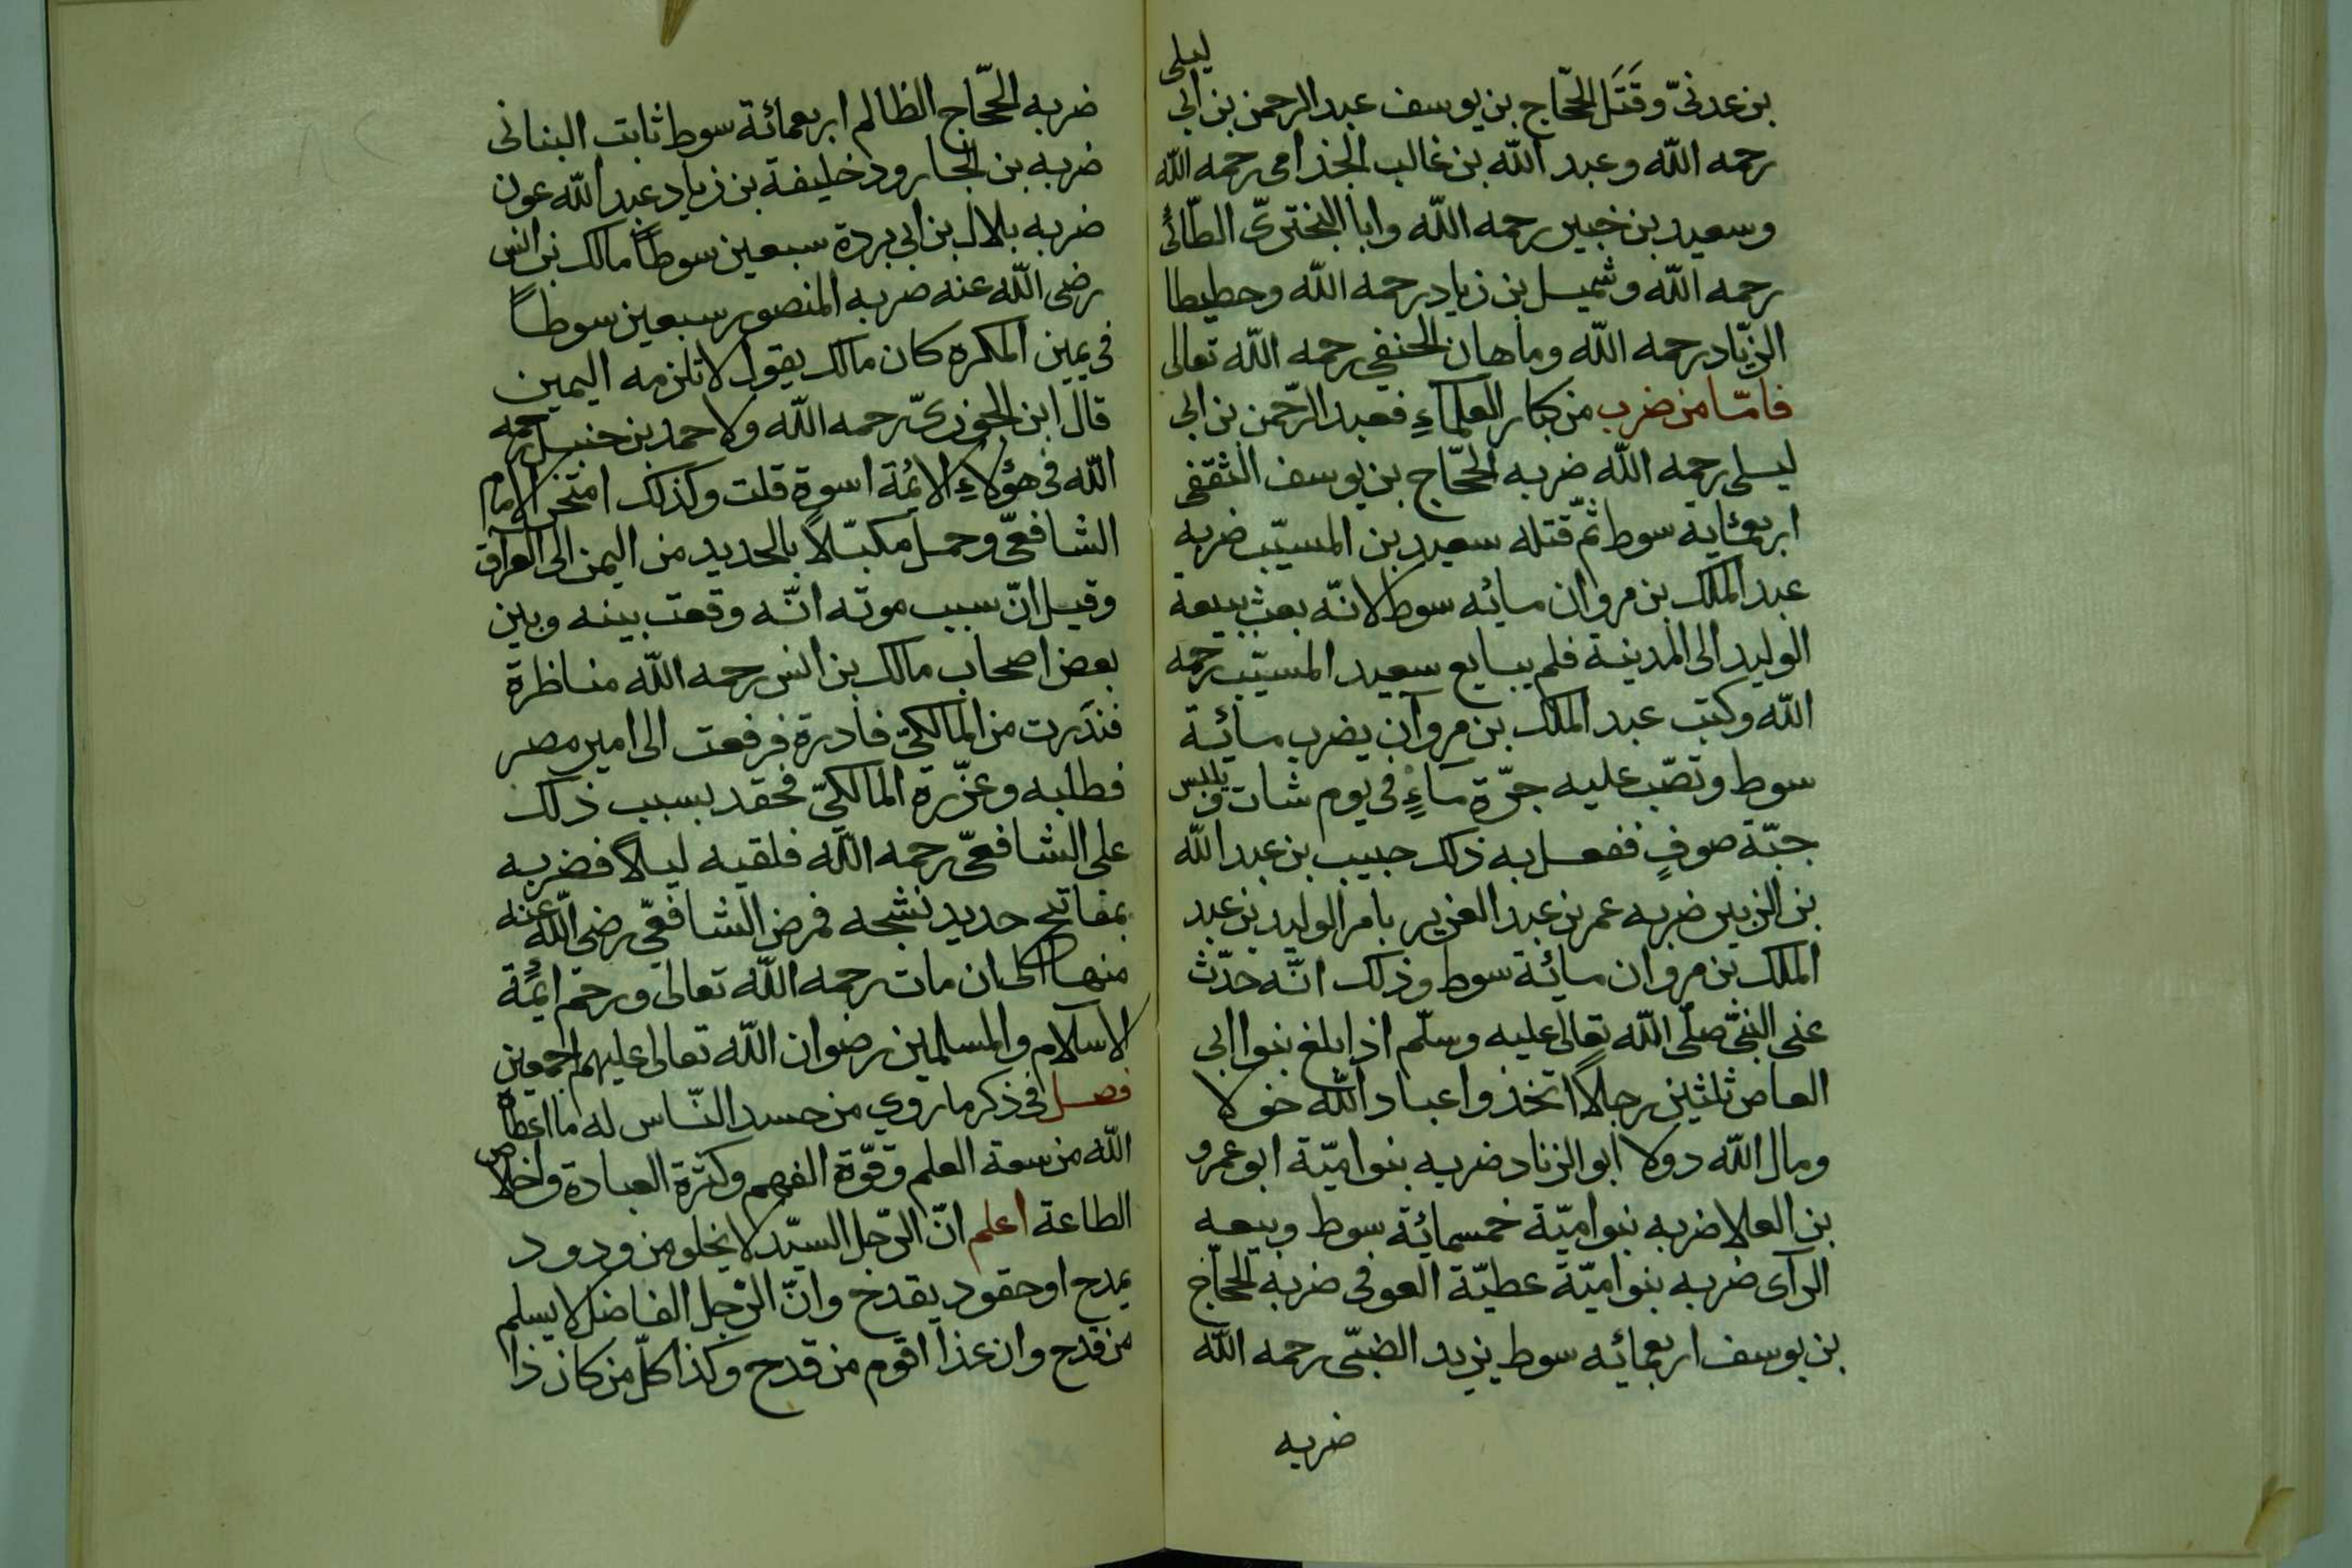 بن عدنىّ وقَتَل الحّجاج بن يوسف عبد الرحمن بن ابى ليلى
رحمه الله وعبد الله بن غالب الجذامى رحمه الله
وسعيد بن خبير رحمه الله وابا البخترىّ الطّائى
رحمه الله وشميل بن زياد رحمه الله وحطيطا
الزيّاد رحمه الله وماهان الحنفى رحمه الله تعالى
فامّا من ضرب من كبار العلماءِ فعبد الرّحمن بن ابى
ليلى رحمه الله ضربه الحّجاج بن يوسف الثقفى
اربعمايه سوط ثمّ قتله سعيد بن المسيّب ضربه
عبد الملك بن مروان مائه سوط لانّه بعث ببيعة
الوليد الى المدينة فلم يبايع سعيد المسيّب رحمه
الله وكتب عبد الملك بن مروان يضرب مائة
سوط وتصّب عليه جرّة ماءٍ فى يوم شات ويلبس
جبّة صوفٍ ففعل به ذلك حبيب بن عبد الله
بن الزبير ضربه عمر بن عبد العزيز بامر الوليد بن عبد
الملك بن مروان مائة سوط وذلك انّه حدّث
عنى النبىّ صلّى الله تعالى عليه وسلّم اذا بلغ بنوا ابى
العاص ثلثين رجلاً اتخذوا عباد الله خولا
ومال الله دولا ابو الزناد ضربه بنو اميّة ابو عمرو
بن العلا ضربه بنو اميّة خمسمائة سوط وبيعه
الرآى ضربه بنو اميّة عطيّة العوفى ضربه الحّجاج
بن يوسف اربعمائه سوط يزيد الضبّى رحمه الله
ضربه
ضربه الحّجاج الظالم اربعمائة سوط ثابت البنانى
ضربه بن الجارود خليفة بن زياد عبد الله عون
ضربه بلال بن ابى بردة سبعين سوطاً مالك بن انس
رضى الله عنه ضربه المنصور سبعين سوطاً
فى يمين المكره كان مالك يقول لا تلزمه اليمين
قال ابن الجوزىّ رحمه الله ولاحمد بن حنبل رحمه
الله فى هؤلاءِ الائمة اسوة قلت وكذلك امتحن الامام
الشافعىّ وحمل مكبّلاً بالحديد من اليمن الى العراق
وقيل انّ سبب موته انّه وقعت بينه وبين
بعض اصحاب مالك بن انس رحمه الله مناظرة
فندَرت من المالكىّ فادرة فرفعت الى امير مصر
فطلبه وعزّرة المالكىّ فحقد بسبب ذلك
على الشافعىّ رحمه الله فلقيه ليلاً فضربه
بمفاتيح حديد نشجه فمرض الشافعىّ رضى الله عنه
منها الى ان مات رحمه الله تعالى ورحم ائمّة
الاسلام والمسلمين رضوان الله تعالى عليهم اجمعين
فصل فى ذكر ما روى من حسد النّاس له ما اعطاه
الله من سعة العلم وقوّة الفهم وكثرة العبادة واخلاص
الطاعة اعلم انّ الرّجل السيّد لا يخلو من ودود
يمدح او حقود يقدح وانّ الرّجل الفاضل لا يسلم
من قدح وان غذا اقوم من قدح وكذا كلّ من كان ذا